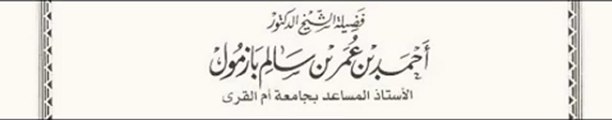 فضيلة الشيخ الدكتور
أحمد بن عمر بن سالم بازمول
الأستاذ المساعد بجامعة أم القرى